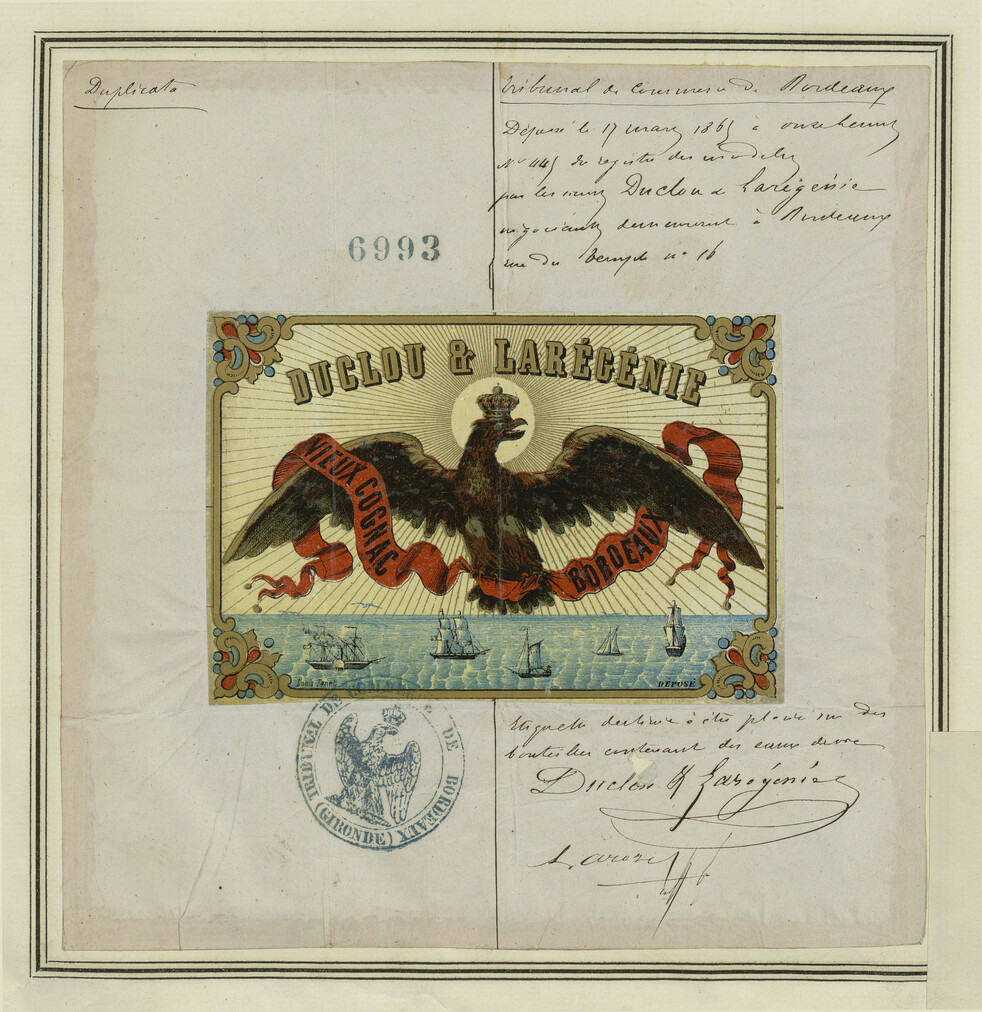 Duplicata
Tribunal de Commerce de Bordeaux
Déposé le 17 mars 1865 à onze heures
N° 445 du registre des modèles
par les sieurs Duclou & Larégénie
négociants demeurant à Bordeaux
rue du Temple n° 16
6993
DUCLOU & LARÉGÉNIE
VIEUX COGNAC
BORDEAUX
DÉPOSÉ
TRIBUNAL DE COMMERCE DE BORDEAUX
(GIRONDE)
Etiquette destinée à être placée sur des
bouteilles contenant des eaux de vie
Duclou & Larégénie